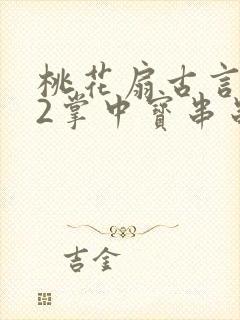 桃花扇古言
2掌中寳串
吉金